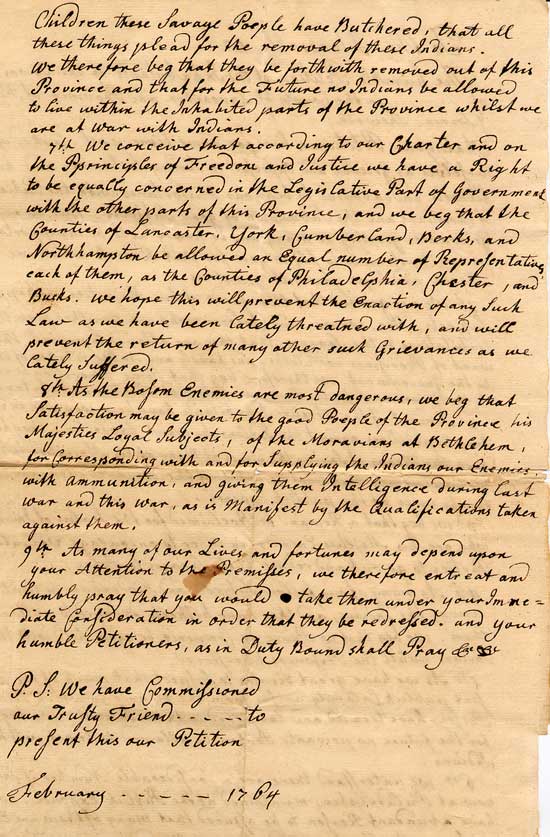 Children these Savage Poeple have Butchered, that all
these things plead for the removal of these Indians.
We therefore beg that they be forthwith removed out of this
Province and that for the Future no Indians be allowed
to live within the Inhabited parts of the Province whilst we
are at War with Indians.
7th We conceive that according to our Charter and on
the Pprinciples of Freedom and Justice we have a Right
to be equally concerned in the Legislative Part of Government
with the other parts of this Province, and we beg that the
Counties of Lancaster, York, Cumberland, Berks, and
Northhampton be allowed an Equal number of Representatives
each of them, as the Counties of Philadelphia, Chester, and
Bucks. We hope this will prevent the Enaction of any Such
Law as we have been lately threatned with, and will
prevent the return of many other such Grievances as we
lately Suffered.
8th As the Bosom Enemies are most dangerous, we beg that
Satisfaction may be given to the good Poeple of the Province his
Majesties Loyal Subjects, of the Moravians at Bethlehem,
for Corresponding with and for Supplying the Indians our Enemies
with Ammunition, and giving them Intelligence during last
War and this War, as is Manifest by the Qualifications taken
against them.
9th As many of our Lives and fortunes may depend upon
your Attention to the Premisses, we therefore entreat and
humbly pray that you would take them under your Imme=
diate Consideration in order that they be redressed. and your
humble Petitioners, as in Duty Bound shall Pray &c &c
P. S: We have Commissioned
our Trusty Friend - - - - - to
present this our Petition
February - - - - - - 1764